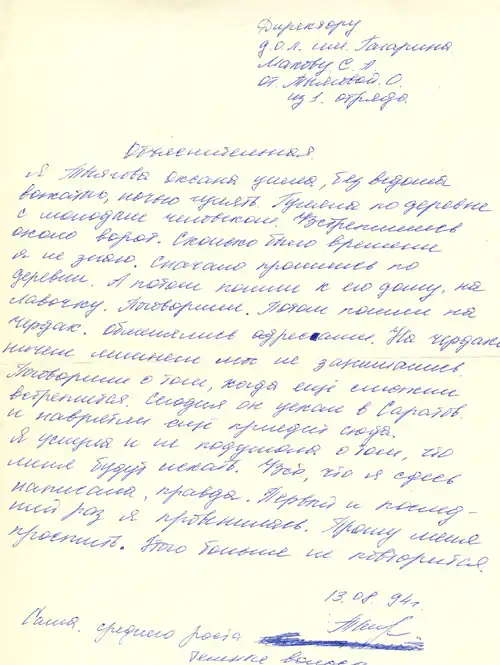 Директору
д.о.л. им. Гагарина
Макову С. А.
от Тняговой О.
из 1. отряда.
Объяснительная.
Я Тнягова Оксана ушла, без ведома
вожатго, ночью гулять. Гуляла по деревне
с молодым человеком. Встретились
около ворот. Сколько было времени
я не знаю. Сначало прошлись по
деревни. А потом пошли к его дому, на
лавочку. Поговорили. Потом пошли на
чердак. Обменялись адресами. На чердаке
ничем лишнем мы не занимались.
Поговорили о том, когда ещё сможем
встретится. Сегодня он уехал в Саратов.
и наврятли ещё приедит сюда.
Я ушла и не подумала о том, что
меня будут искать. Всё, что я здесь
написала, правда. Первый и послед-
ний раз я провинилась. Прошу меня
простить. Этого больше не повторится.
13.08.94г.
Саша. среднего роста
темные волосы